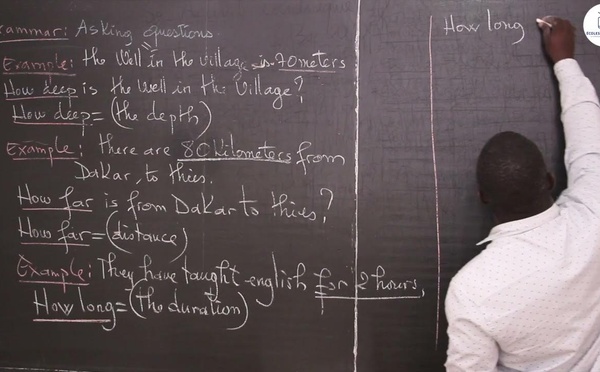 rammar: Asking questions
Example: the Well in the village is 70 meters
How deep is the Well in the Village?
How deep = (the depth)
Example: there are 80 kilometers from
Dakar, to thies.
How far is from Dakar to thies?
How far = (distance)
Example: They have taught english for 2 hours,
How long = (the duration)
How long